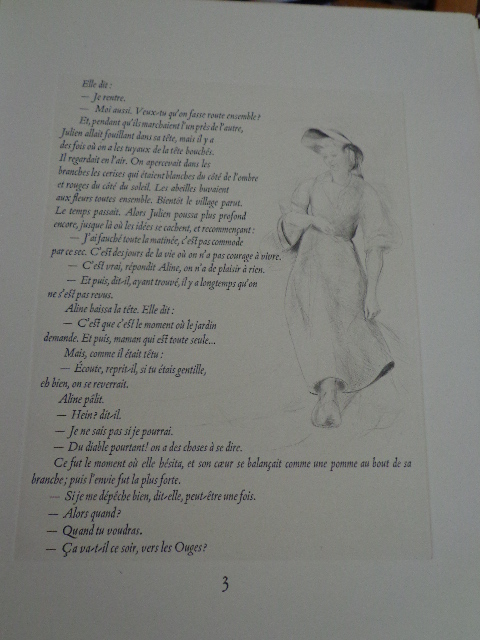 Elle dit :
— Je rentre.
— Moi aussi. Veux-tu qu'on fasse route ensemble ?
Et, pendant qu'ils marchaient l'un près de l'autre,
Julien allait fouillant dans sa tête, mais il y a
des fois où on a les tuyaux de la tête bouchés.
Il regardait en l'air. On apercevait dans les
branches les cerises qui étaient blanches du côté de l'ombre
et rouges du côté du soleil. Les abeilles buvaient
aux fleurs toutes ensemble. Bientôt le village parut.
Le temps passait. Alors Julien poussa plus profond
encore, jusque là où les idées se cachent, et recommençant :
— J'ai fauché toute la matinée, c'est pas commode
par ce sec. C'est des jours de la vie où on n'a pas courage à vivre.
— C'est vrai, répondit Aline, on n'a de plaisir à rien.
— Et puis, dit-il, ayant trouvé, il y a longtemps qu'on
ne s'est pas revus.
Aline baissa la tête. Elle dit :
— C'est que c'est le moment où le jardin
demande. Et puis, maman qui est toute seule...
Mais, comme il était têtu :
— Écoute, reprit-il, si tu étais gentille,
eh bien, on se reverrait.
Aline pâlit.
— Hein ? dit-il.
— Je ne sais pas si je pourrai.
— Du diable pourtant ! on a des choses à se dire.
Ce fut le moment où elle hésita, et son cœur se balançait comme une pomme au bout de sa
branche ; puis l'envie fut la plus forte.
— Si je me dépêche bien, dit-elle, peut-être une fois.
— Alors quand ?
— Quand tu voudras.
— Ça va-t-il ce soir, vers les Ouges ?
3